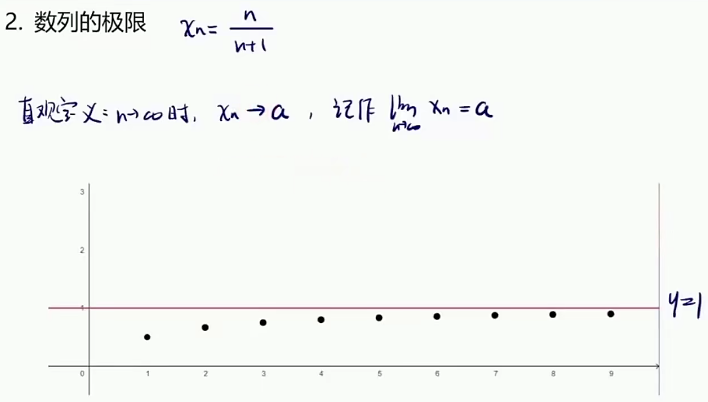 2. 数列的极限 xₙ = n/(n+1)
直观定义: n→∞时, xₙ→a, 记作 lim_{n→∞} xₙ = a
3
2
1
y=1
0 1 2 3 4 5 6 7 8 9